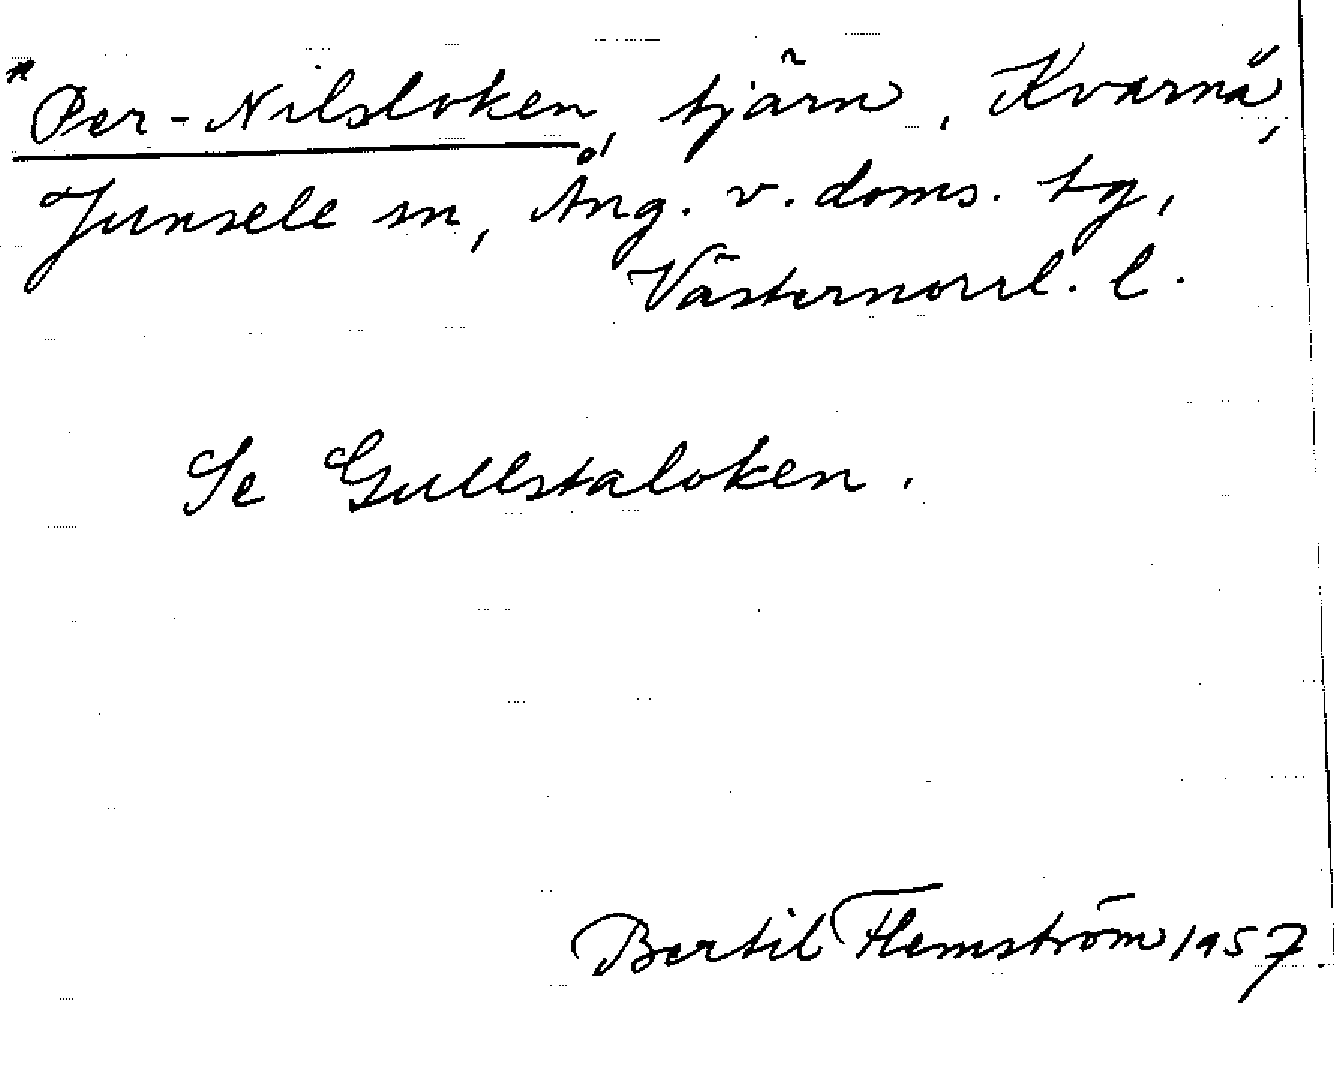 *Per-Nilsloken, tjärn, Kvarnå,
Junsele sn, Ång. v. doms. tg,
Västernorrl. l.
Se Gullstaloken.
Bertil Flemström 1957.